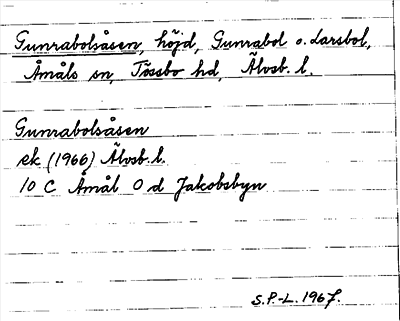 Gunrabolsåsen, höjd, Gunrabol o. Larsbol,
Åmåls sn, Tössbo hd, Älvsb. l.
Gunrabolsåsen
ek (1966) Älvsb. l.
10 C Åmål 0 d Jakobsbyn
S.P.-L. 1967.